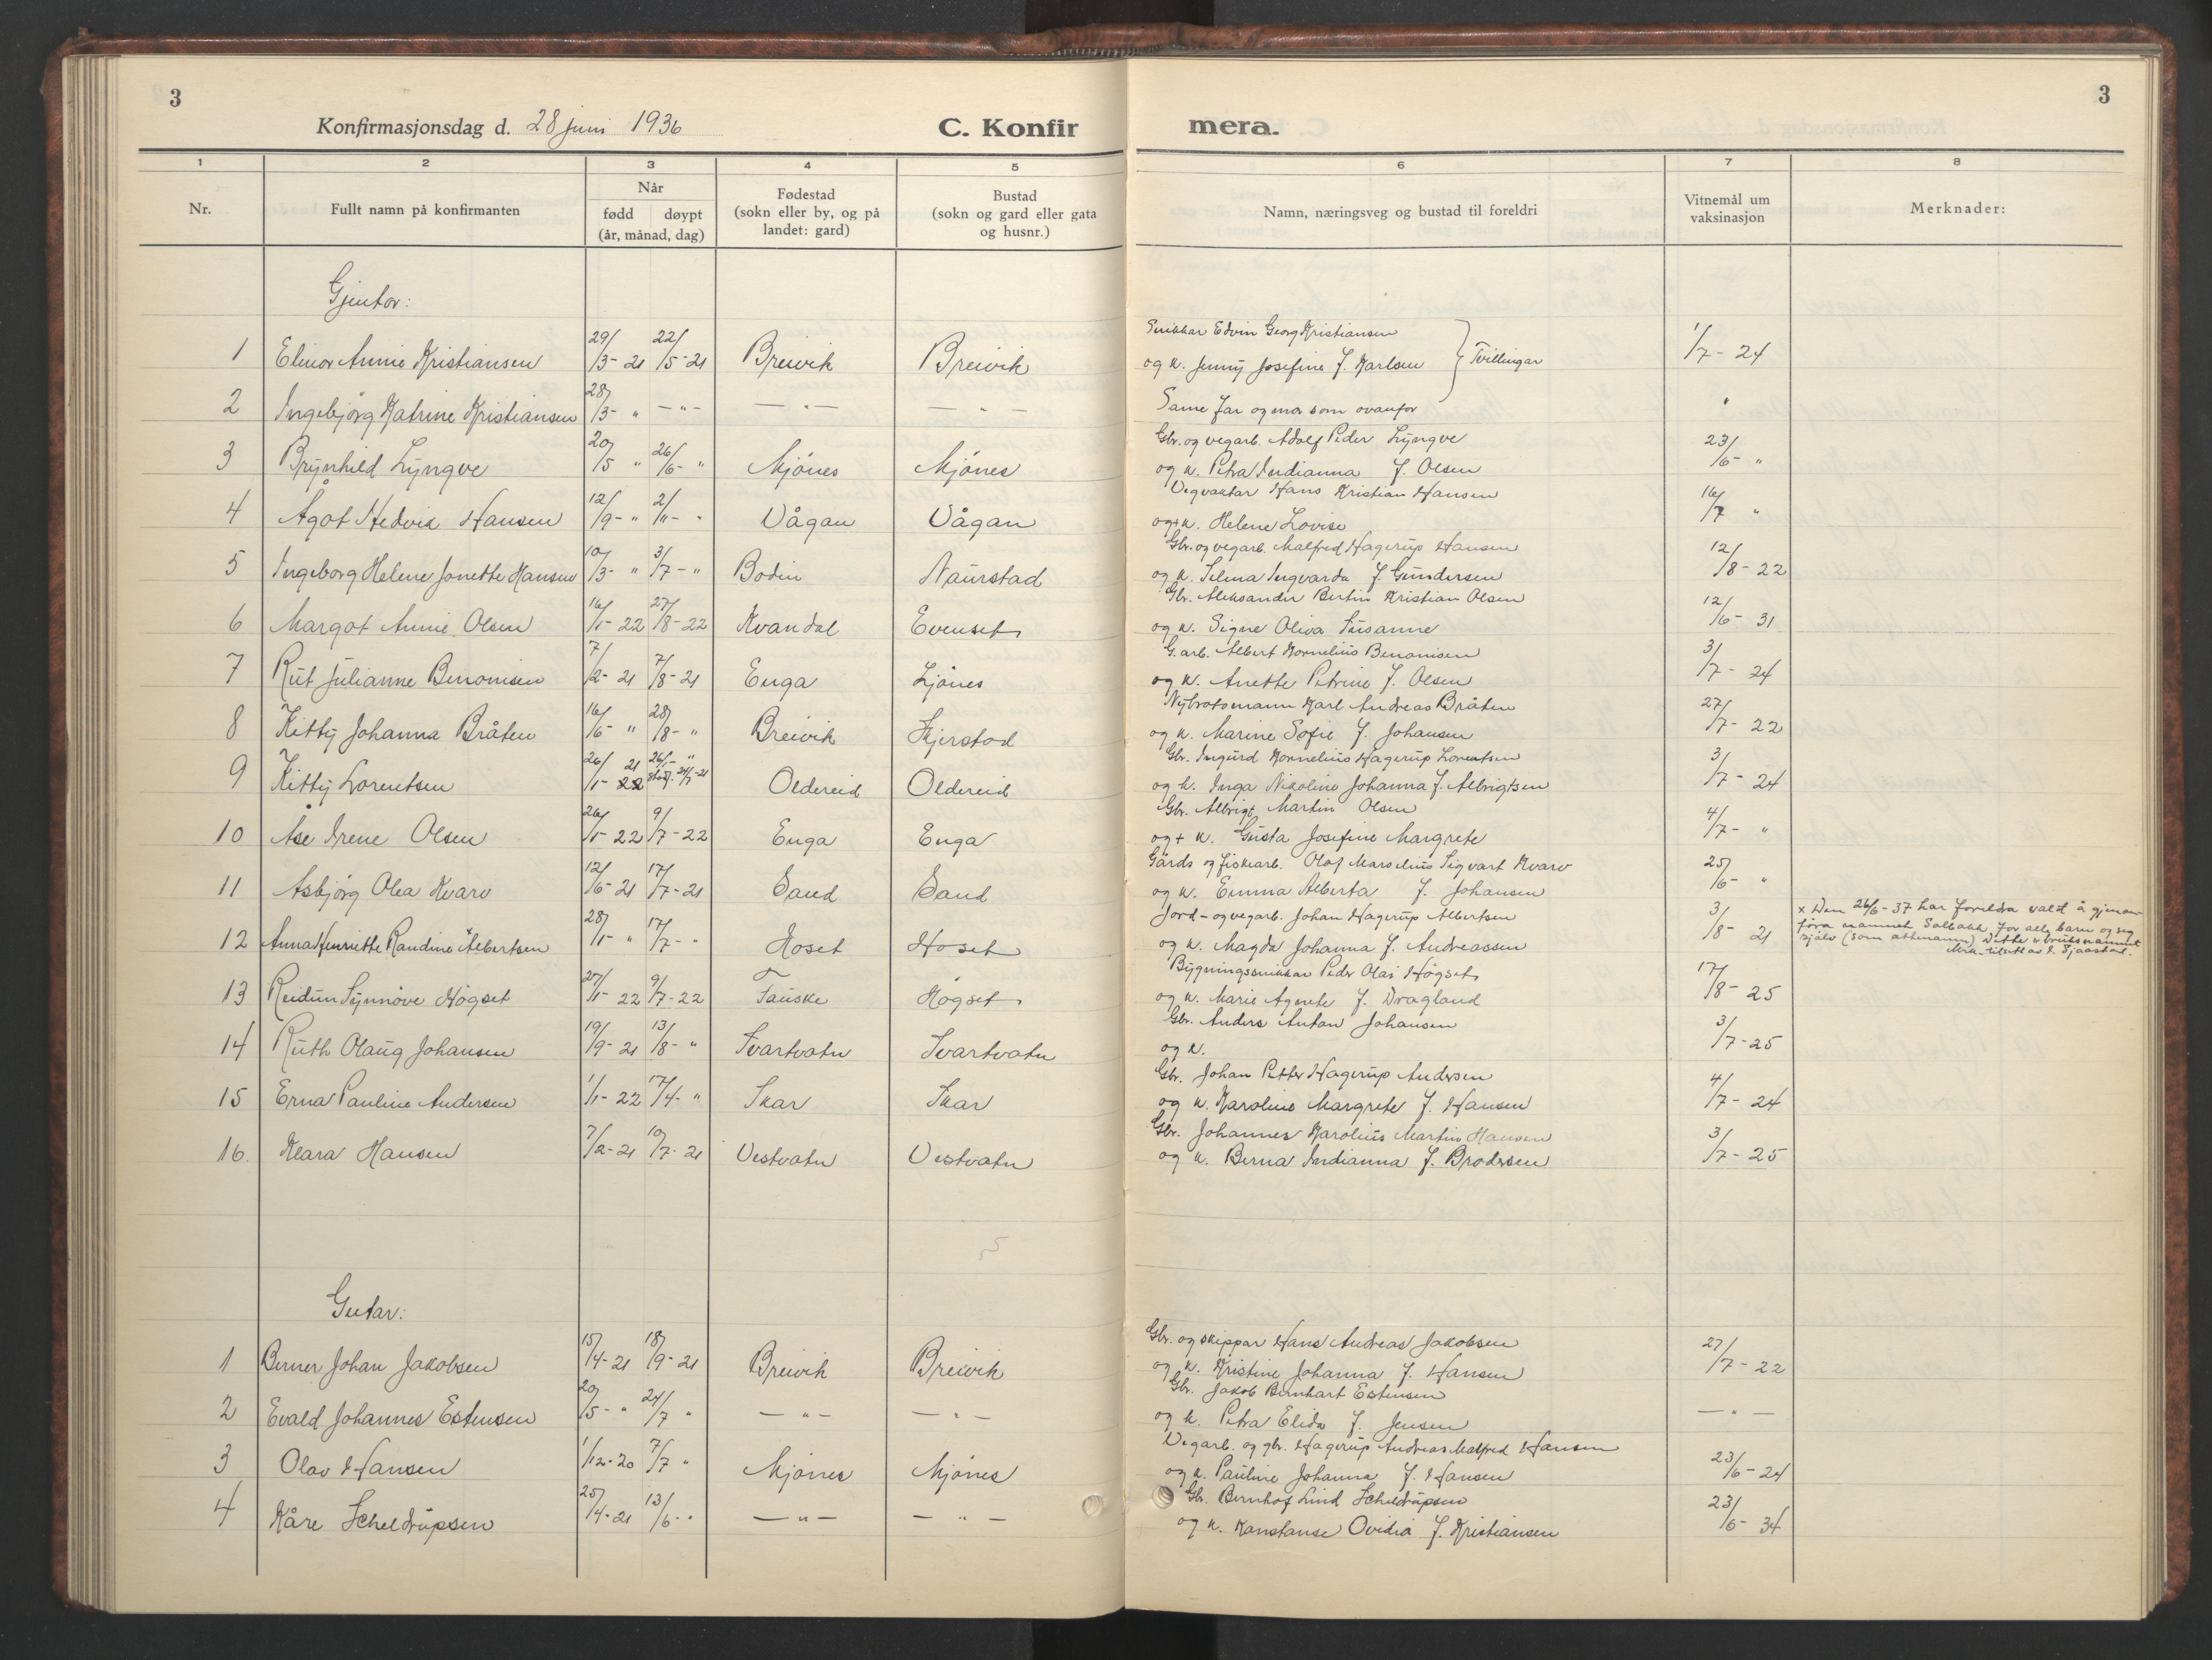 3
Konfirmasjonsdag d. 28 juni 1936
C. Konfir
mera.
3
1 2 3 4 5 6 7 8
Nr.
Fullt namn på konfirmanten
Når
fødd døypt
(år, månad, dag)
Fødestad
(sokn eller by, og på
landet: gard)
Bustad
(sokn og gard eller gata
og husnr.)
Namn, næringsveg og bustad til foreldri
Vitnemål um
vaksinasjon
Merknader:
Gjentor:
1 Elinor Annie Kristiansen 29/3-21 22/5-21 Breivik Breivik Snikkar Edvin Georg Kristiansen
og k. Jenny Josefine f. Karlsen } Tvillingar 1/7-24
2 Ingebjørg Katrine Kristiansen 28/3- " — " — — " — — " — Same far og mor som ovanfor "
3 Brynhild Lyngve 20/5 " 26/6- " Mjönes Mjönes Gbr. og vegarb. Adolf Peder Lyngve
og k. Petra Indianna f. Olsen 23/6- "
4 Ågot Hedvik Hansen 12/9- " 2/11- " Vågan Vågan Vegvaktar Hans Kristian Hansen
og + k. Helene Lovise 16/7 "
5 Ingeborg Helene Jonette Hansen 10/3- " 3/7- " Bodin Naurstad Gbr. og vegarb. Malfred Hagerup Hansen
og k. Selma Ingvarda f. Gundersen 12/8-22
6 Margot Annie Olsen 16/1-22 27/8-22 Kvandal Evenset Gbr. Aleksander Bertin Kristian Olsen
og k. Signe Oliva Susanne 12/6-31
7 Rut Julianne Benonisen 7/2-21 7/8-21 Enga Ljönes G. arb. Albert Kornelius Benonisen
og k. Anette Petrine f. Olsen 3/7-24
8 Kitty Johanna Bråten 16/6- " 28/8- " Breivik Skjerstad Nybrotsmann Karl Andreas Bråten
og k. Marine Sofie f. Johansen 27/7-22
9 Kitty Lorentsen 26/1-22 21 26/1- " Stadf. 24/7-21 Oldereid Oldereid Gbr. Ingurd Kornelius Hagerup Lorentsen
og k. Inga Nikoline Johanna f. Albrigtsen 3/7-24
10 Åse Irene Olsen 26/1-22 9/7-22 Enga Enga Gbr. Albrigt Martin Olsen
og + k. Gusta Josefine Margrete 4/7- "
11 Asbjörg Olea Kvarv 12/6-21 17/7-21 Sand Sand Gårds og fiskarb. Olaf Marselius Sigvart Kvarv
og k. Emma Alberta f. Johansen 25/6- "
12 Anna Henriette Randine Albertsen 28/1- " 17/7- " Hoset Hoset Jord- og vegarb. Johan Hagerup Albertsen
og k. Magda Johanna f. Andreassen 3/8-21
x Den 26/6-37 har foreldra valt å gjenom-
föra namnet Solbakk for alle barn og seg
sjölv (som ættenamn) Dette er bruksnamnet
Mrk. tilsett av S. Sjaastad.
13 Reidun Synnöve Högset 27/1-22 9/7-22 Fauske Högset Bygningssnikkar Peder Olai Högset
og k. Marie Agnete f. Dragland 17/8-25
14 Ruth Olaug Johansen 19/9-21 13/8- " Svartvatn Svartvatn Gbr. Anders Antan Johansen
og k. 3/7-25
15 Erna Pauline Andersen 1/1-22 17/4- " Skar Skar Gbr. Johan Petter Hagerup Andersen
og k. Karoline Margrete f. Hansen 4/7-24
16. Klara Hansen 7/2-21 10/7-21 Vestvatn Vestvatn Gbr. Johannes Karolius Martin Hansen
og k. Berna Indianna f. Brodersen 3/7-25
5
Gutar:
1 Berner Johan Jakobsen 15/4-21 18/9-21 Breivik Breivik Gbr. og skippar Hans Andreas Jakobsen
og k. Kristine Johanna f. Hansen 27/7-22
2 Evald Johannes Estensen 20/5- " 24/7 " — " — — " — Gbr. Jakob Bernhart Estensen
og k. Petra Elida f. Jensen — " —
3 Olav Hansen 1/12-20 7/7 " Mjönes Mjönes Vegarb. og gbr. Hagerup Andreas Malfred Hansen
og k. Pauline Johanna f. Hansen 23/6-24
4 Kåre Scheldrupsen 25/4-21 13/6- " — " — — " — Gbr. Bernhof Lind Scheldrupsen
og k. Konstanse Ovidia f. Kristiansen 23/6-34